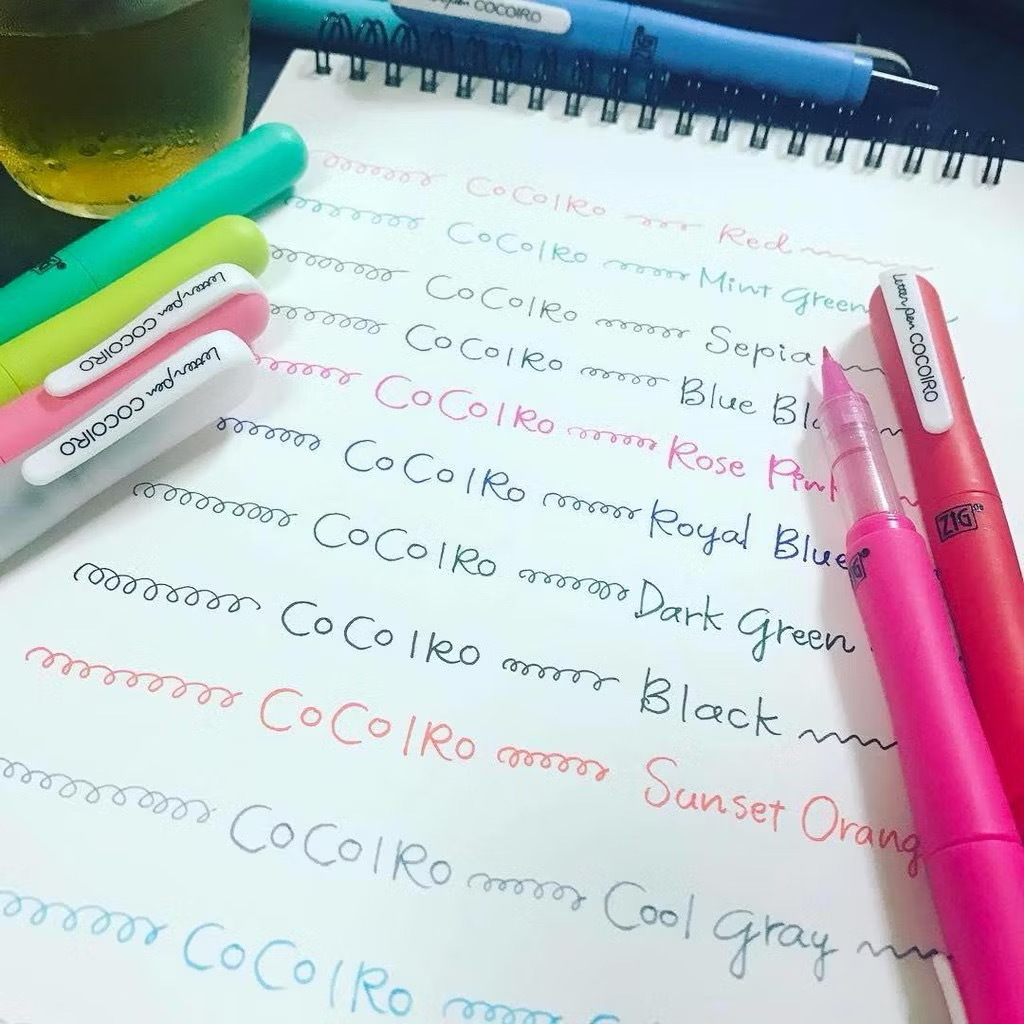 pen COCOIRO
ZIG
CoCoIRo Red
CoCoIRo Mint Green
CoCoIRo Sepia
CoCoIRo Blue
CoCoIRo Rose
CoCoIRo Royal Blue
CoCoIRo Dark Green
CoCoIRo Black
CoCoIRo Sunset
CoCoIRo Cool Gray
CoCoIRo
Letter pen COCOIRO
Letter pen COCOIRO
Letter pen COCOIRO
ZIG